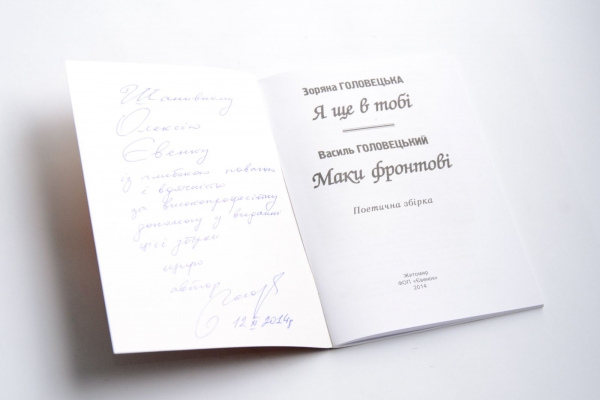 Шановному
Олексію
Євенку
із глибокою повагою
і вдячністю
за високопрофесійну
допомогу у виданні
цієї збірки
щиро
автор
12 XI 2014р
Зоряна ГОЛОВЕЦЬКА
Я ще в тобі
Василь ГОЛОВЕЦЬКИЙ
Маки фронтові
Поетична збірка
Житомир
ФОП «Євенок»
2014